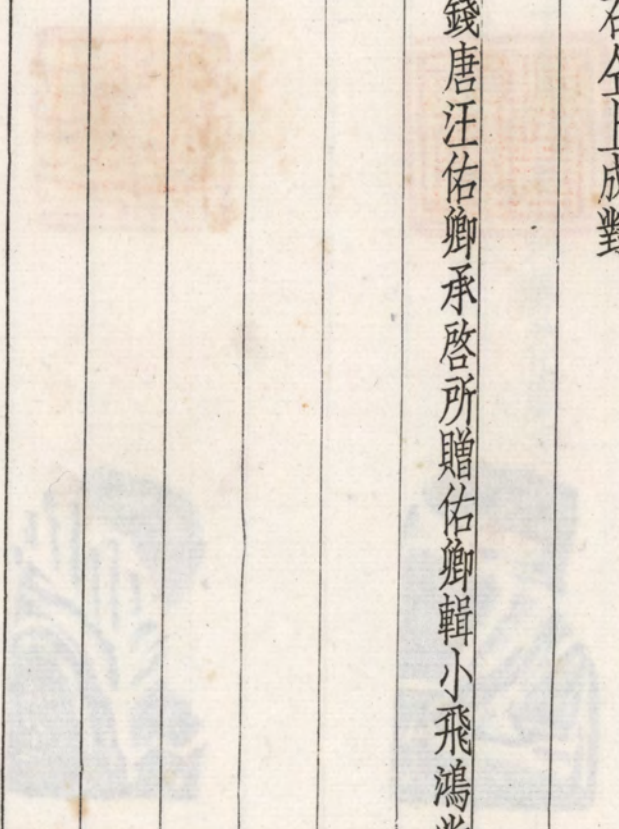 仝上成對
錢唐汪佑卿承啓所贈佑卿輯小飛鴻